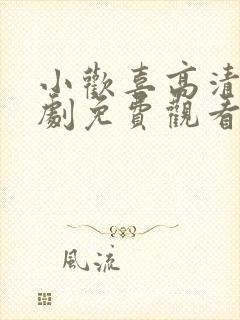 小歡喜高清
劇免費觀看
風流